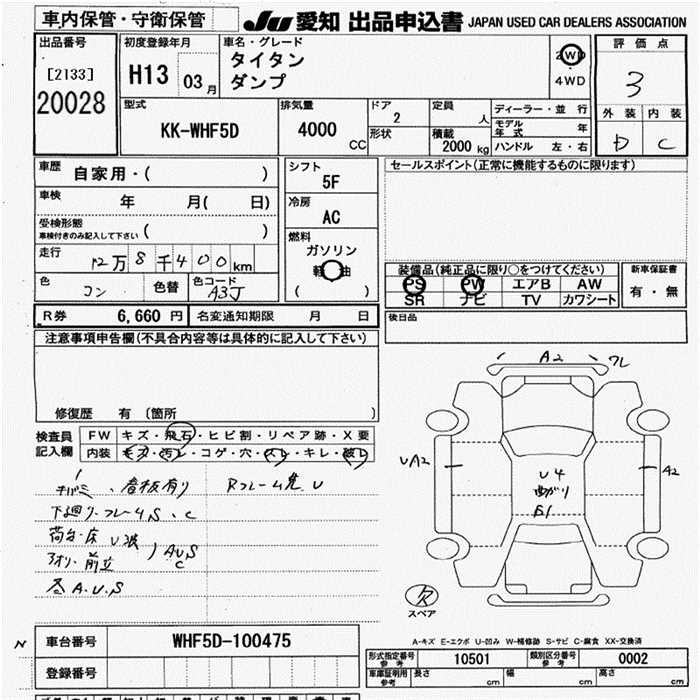 車内保管・守衛保管
JU 愛知 出品申込書 JAPAN USED CAR DEALERS ASSOCIATION
出品番号
[2133]
20028
初度登録年月
H13 03 月
車名・グレード
タイタン
ダンプ
2WD
4WD
評価点
3
外装 内装
D C
型式
KK-WHF5D
排気量
4000 CC
ドア
2
形状
定員
人
積載
2000 kg
ディーラー・並行
モデル
年式
ハンドル 左・右
車歴
自家用・( )
車検
年 月( 日)
受検形態
車検付きのみ記入して下さい ( )
走行
12万8千400 km
色
コン
色替
色コード
A3J
シフト
5F
冷房
AC
燃料
ガソリン
軽油
( )
セールスポイント(正常に機能するものに限ります)
装備品(純正品に限り○をつけてください)
PS PW エアB AW
SR ナビ TV カワシート
新車保証書
有・無
R券 6,660 円 名変通知期限 月 日
後日品
注意事項申告欄(不具合内容等は具体的に記入して下さい)
修復歴 有 〔箇所 〕
検査員
記入欄
FW キズ・飛石・ヒビ割・リペア跡・X要
内装 キズ・汚レ・コゲ・穴・スレ・キレ・破レ
看板有り Rフレーム先 U
下廻り・フレームS、C
荷台・床 U波
アオリ・前立 ) AUS
C
各A.U.S
A2 ワレ
UA2
A2
U4
曲がり
S1
欠
スペア
A-キズ E-エクボ U-凹み W-補修跡 S-サビ C-腐食 XX-交換済
N 車台番号 WHF5D-100475
登録番号
形式指定番号
参考
10501
類別区分番号
参考
0002
車庫証明用
参考
長さ cm 幅 cm 高さ cm